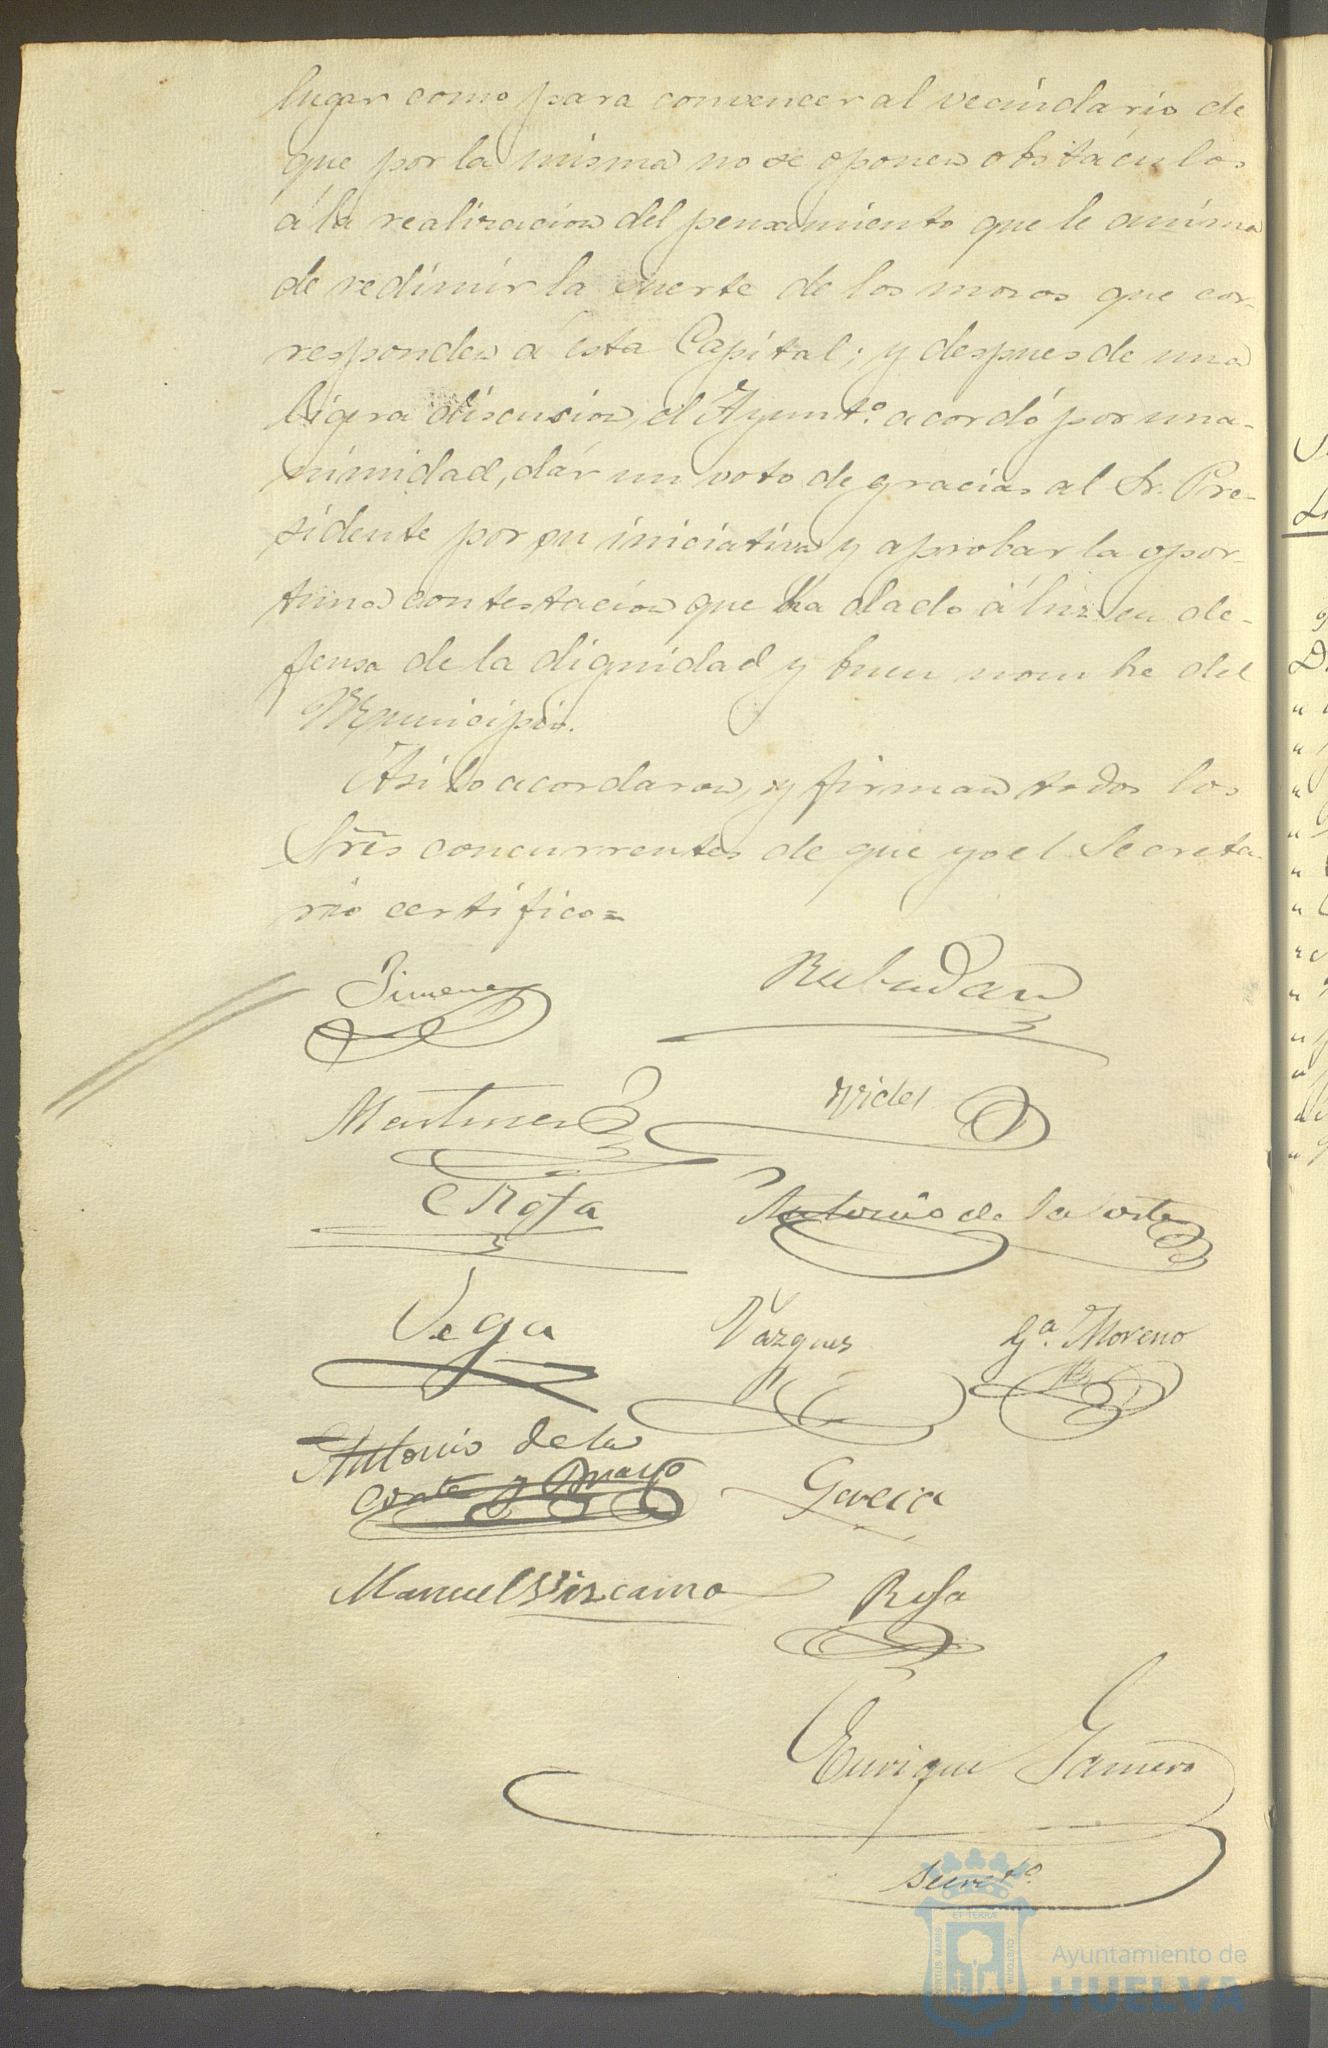 lugar como para convencer al vecindario de
que por la misma no se oponen obstáculos
á la realizacion del pensamiento que le anima
de redimir la suerte de los mozos que cor-
responden á esta Capital; y despues de una
ligera discusion, el Ayunt.º acordó por una-
nimidad, dár un voto de gracias al Sr. Pre-
sidente por su iniciativa y aprobar la opor-
tuna contestacion que ha dado á luz en de-
fensa de la dignidad y buen nombre del
Municipio.
Asi lo acordaron, y firman todos los
Sres concurrentes de que yo el Secreta-
rio certifico=
Jimenez
Rabadan
Martinez
Vidal
Rofa
Antonio de la Corte
Vega
Vazquez
Gª. Moreno
Antonio de la
Corte y
Garcia
Manuel Vizcaino
Rofa
Enrique
Secretº.
Ayuntamiento de
HUELVA